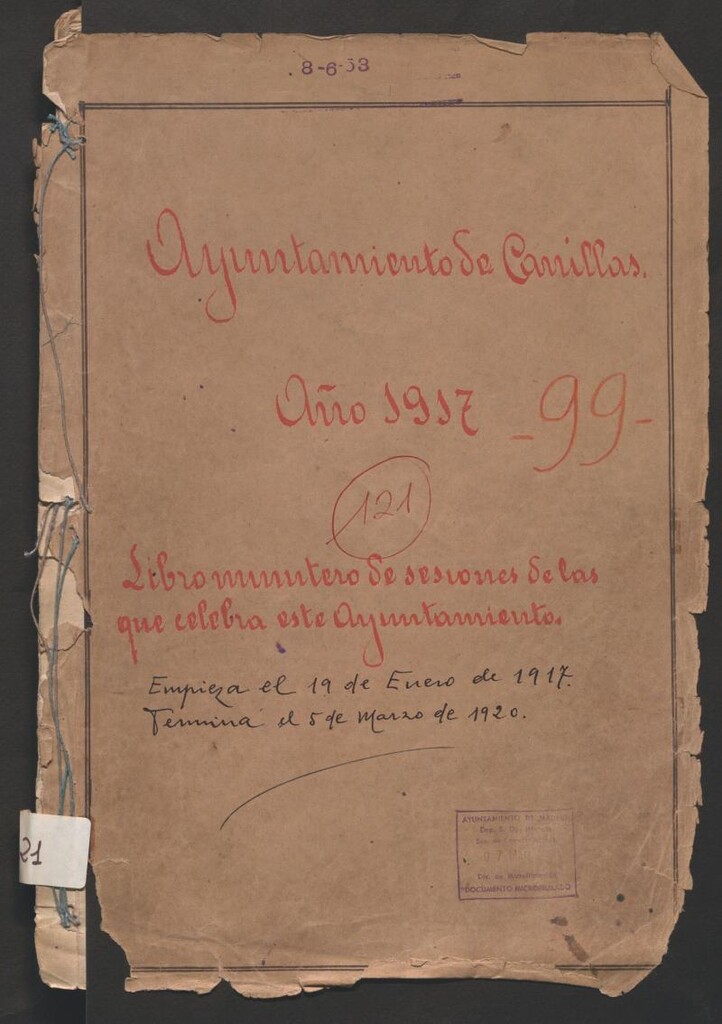 8-6-53
Ayuntamiento de Canillas.
Año 1917 -99-
121
Libro minutero de sesiones de las
que celebra este Ayuntamiento.
Empieza el 19 de Enero de 1917.
Termina el 5 de Marzo de 1920.
21
AYUNTAMIENTO DE MADRID
DOCUMENTO MICROFILMADO